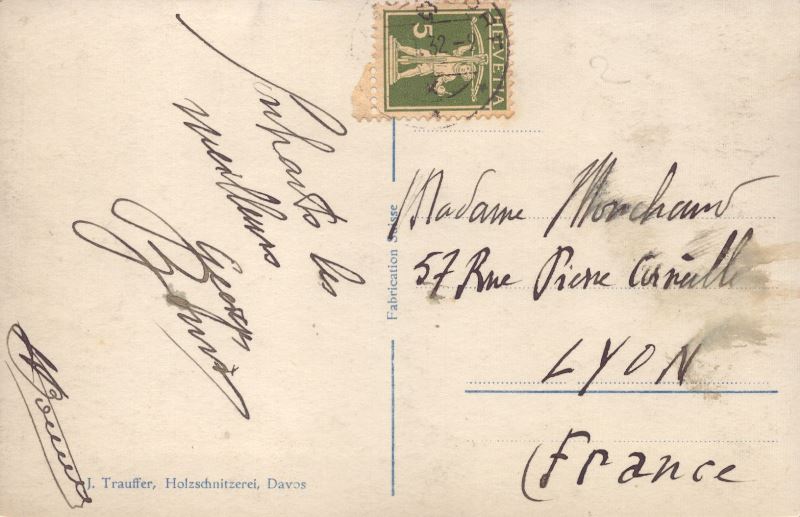 Souhaits les
meilleurs
Georges
HELVETIA
5
32
2
Madame Marchand
57 Rue Pierre Corneille
LYON
France
Fabrication Suisse
J. Trauffer, Holzschnitzerei, Davos